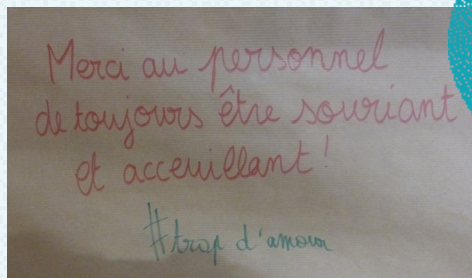 Merci au personnel
de toujours être souriant
et acceuillant !
#trop d'amour